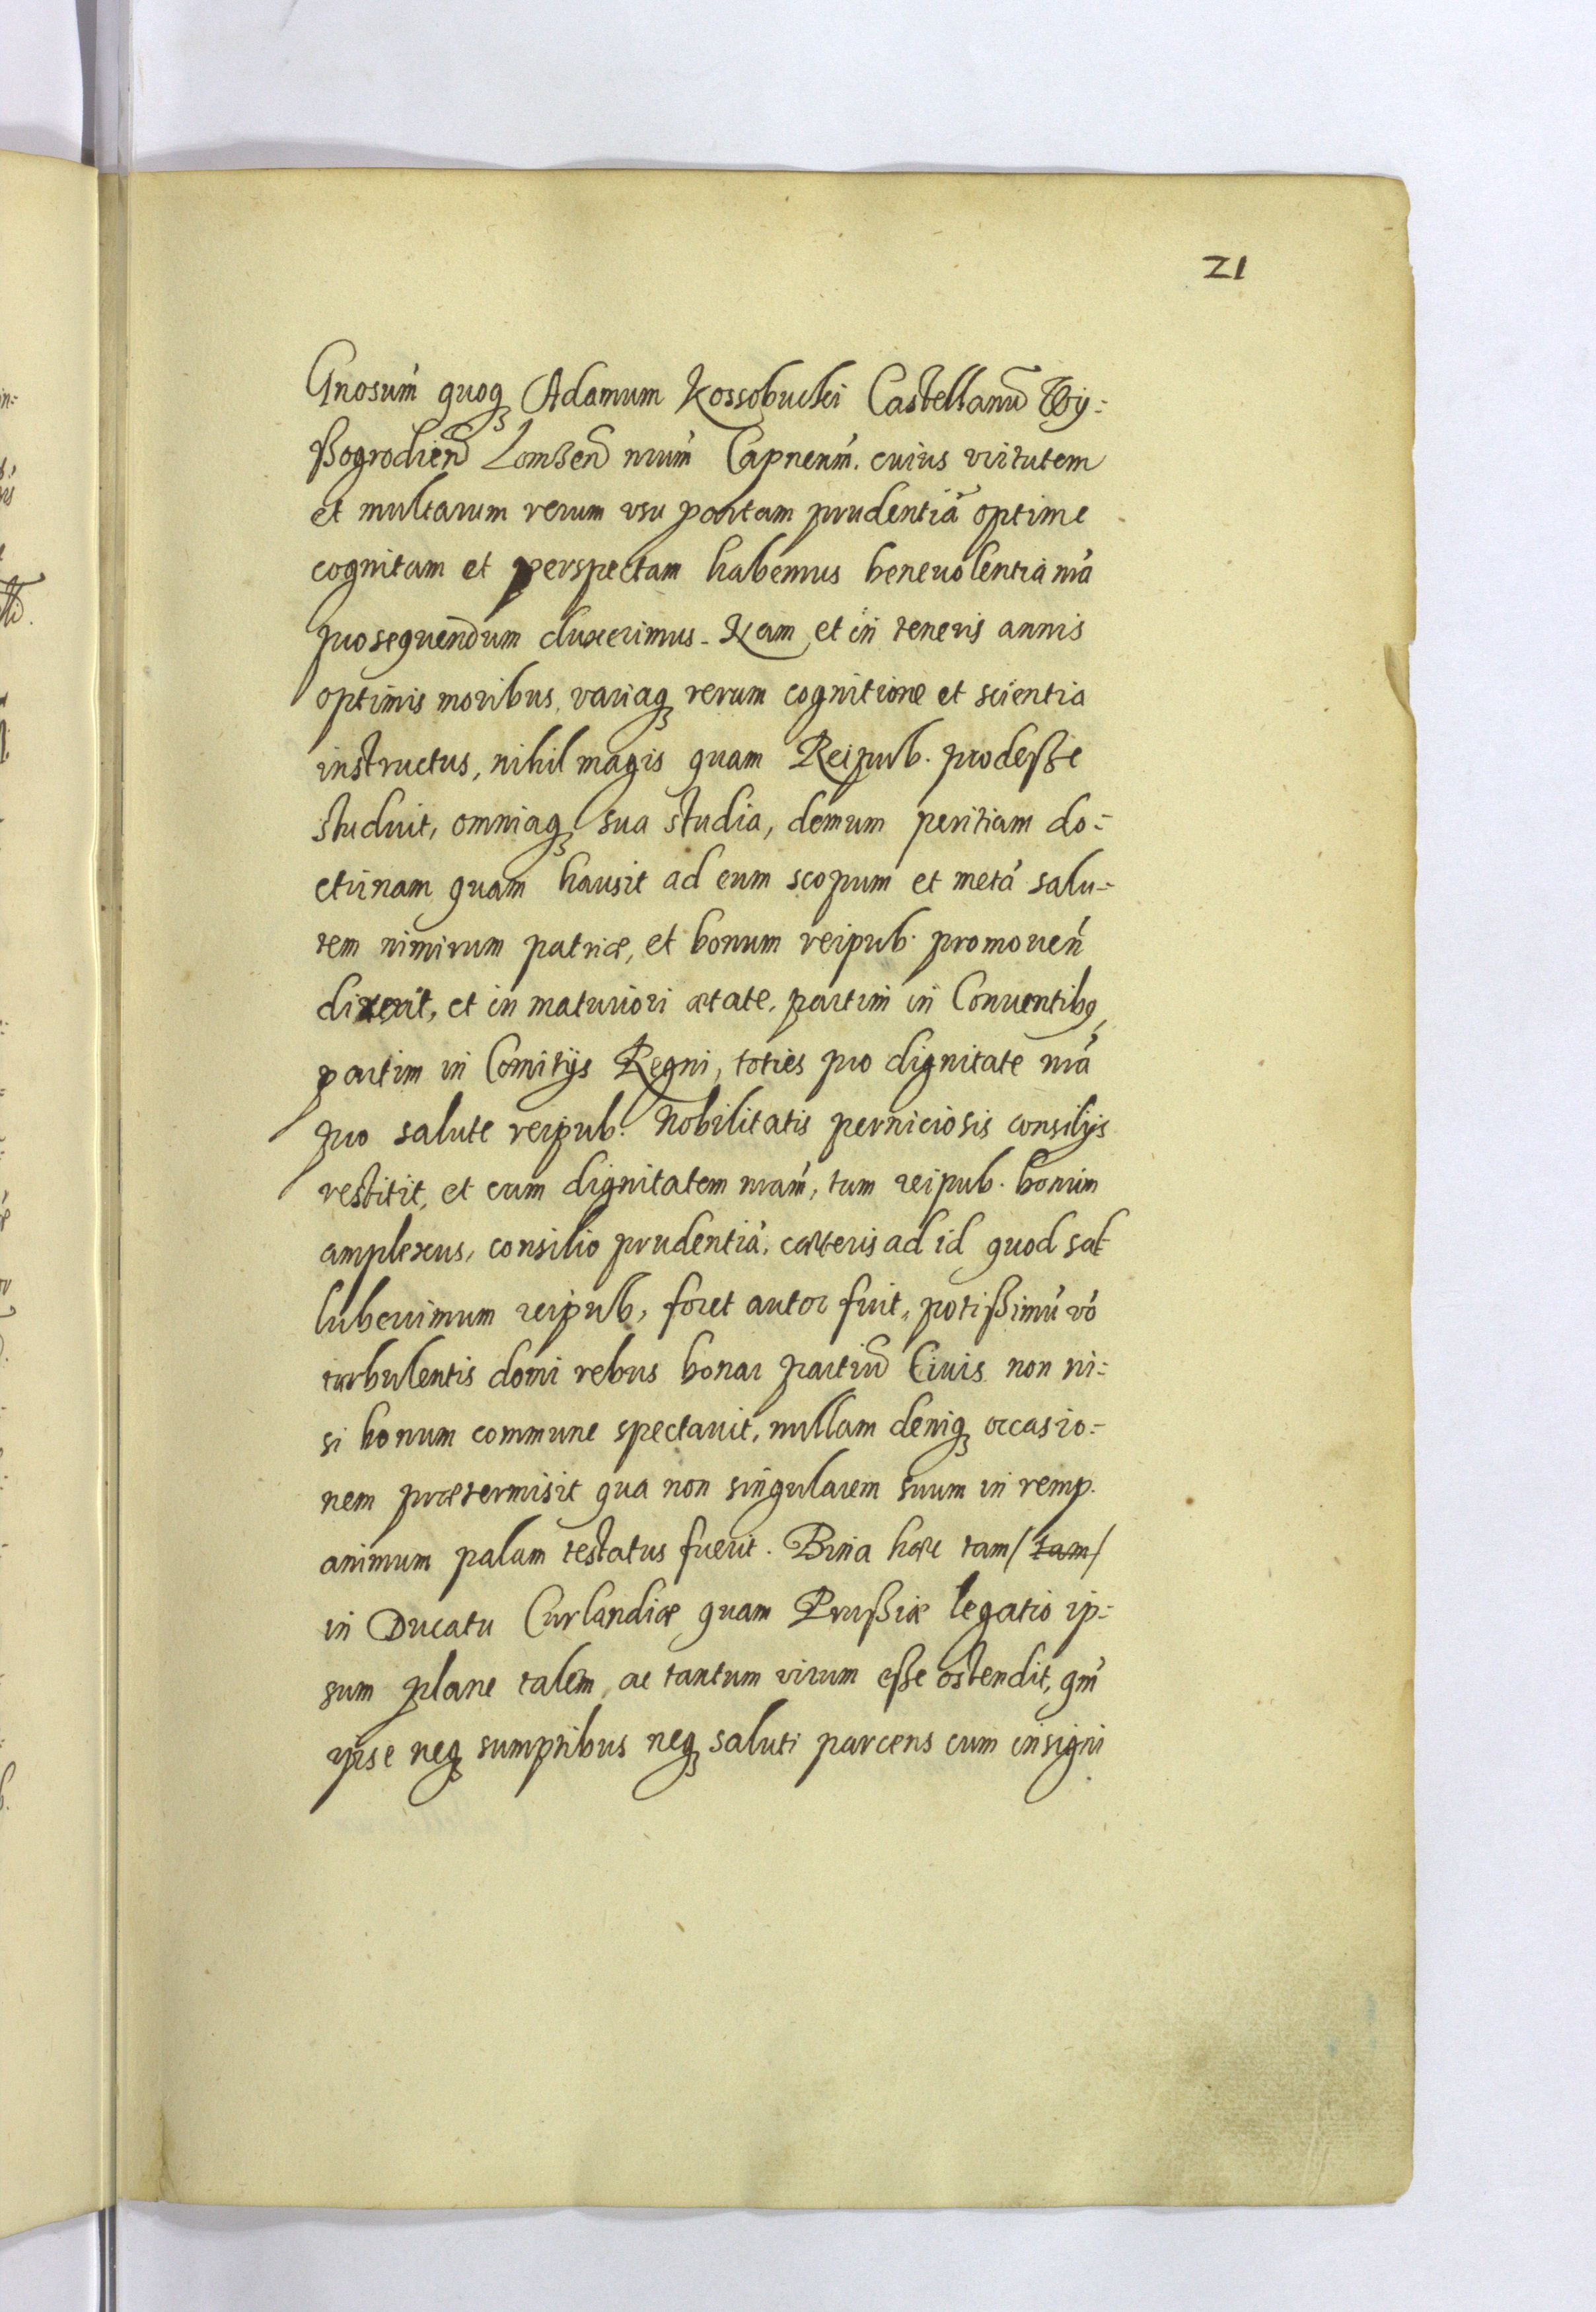 21
Gnosum̃ quoqꝫ Adamum Kossobucki Castellanũ Wÿ=
ßogrodieñ Lomzeñ nrum̃ Capneum̃. cuius virtutem
et multarum rerum vsu partam prudentiã optime
cognitam et perspectam habemus beneuolentia nrã
prosequendum duxerimus. Nam et in teneris annis
optimis moribus, variaqꝫ rerum cognitione et scientia
instructus, nihil magis quam Reipub. prodeße
studuit, omniaqꝫ sua studia, demum peritiam do=
ctrinam quam hausit ad eum scopum et metã salu=
tem nimirum patriæ, et bonum reipub. promoueñ
dixerit, et in maturiori ætate, partim in Conuentibꝫ,
partim in Comitijs Regni, toties pro dignitate nrã
pro salute reipub. Nobilitatis perniciosis consilijs
restitit, et cum dignitatem nram̃, tum reipub. bonum
amplexus, consilio prudentiã, cæteris ad id quod sal
luberrimum reipub, foret autor fuit, potißimũ võ
turbulentis domi rebus bonar partiũ Ciuis non ni=
si bonum commune spectauit, nullam deniqꝫ occasio=
nem prætermisit qua non singularem suum in remp.
animum palam testatus fuerit. Bina hæc tam / tam /
in Ducatu Curlandiæ quam Prußiæ legatio ip=
sum plane talem, ac tantum virum eße ostendit, qm̃
ipse neqꝫ sumptibus neqꝫ saluti parcens cum insigni